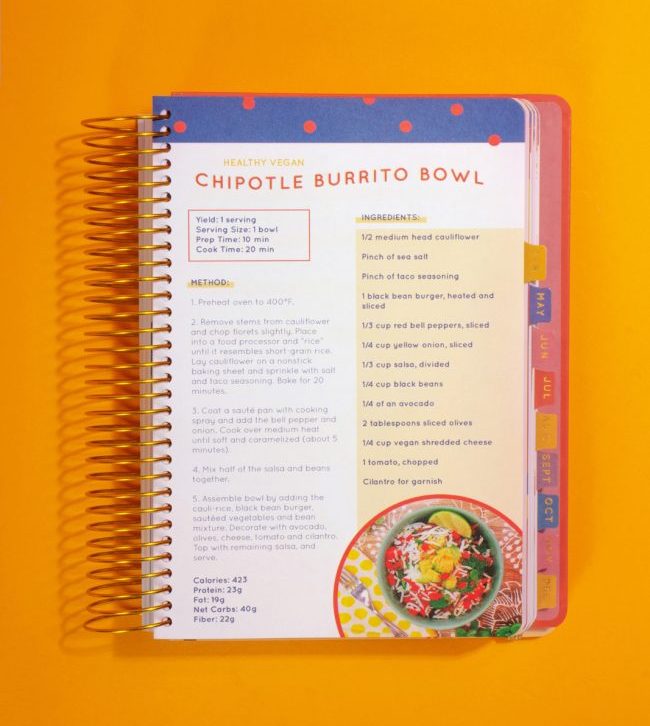 HEALTHY VEGAN
CHIPOTLE BURRITO BOWL
Yield: 1 serving
Serving Size: 1 bowl
Prep Time: 10 min
Cook Time: 20 min
METHOD:
1. Preheat oven to 400°F.
2. Remove stems from cauliflower
and chop florets slightly. Place
into a food processor and "rice"
until it resembles short-grain rice.
Lay cauliflower on a nonstick
baking sheet and sprinkle with salt
and taco seasoning. Bake for 20
minutes.
3. Coat a sauté pan with cooking
spray and add the bell pepper and
onion. Cook over medium heat
until soft and caramelized (about 5
minutes).
4. Mix half of the salsa and beans
together.
5. Assemble bowl by adding the
cauli-rice, black bean burger,
sautéed vegetables and bean
mixture. Decorate with avocado,
olives, cheese, tomato and cilantro.
Top with remaining salsa, and
serve.
Calories: 423
Protein: 23g
Fat: 19g
Net Carbs: 40g
Fiber: 22g
INGREDIENTS:
1/2 medium head cauliflower
Pinch of sea salt
Pinch of taco seasoning
1 black bean burger, heated and
sliced
1/3 cup red bell peppers, sliced
1/4 cup yellow onion, sliced
1/3 cup salsa, divided
1/4 cup black beans
1/4 of an avocado
2 tablespoons sliced olives
1/4 cup vegan shredded cheese
1 tomato, chopped
Cilantro for garnish
MAY
JUN
JUL
SEPT
OCT